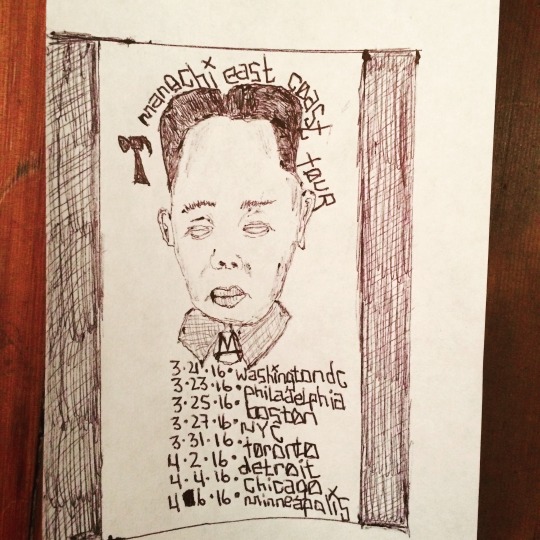 T
east coast tour
M
3·21·16·washingtondc
3·23·16·philadelphia
3·25·16·boston
3·27·16·NYC
3·31·16·toronto
4·2·16·detroit
4·4·16·chicago
4·6·16·minneapolis